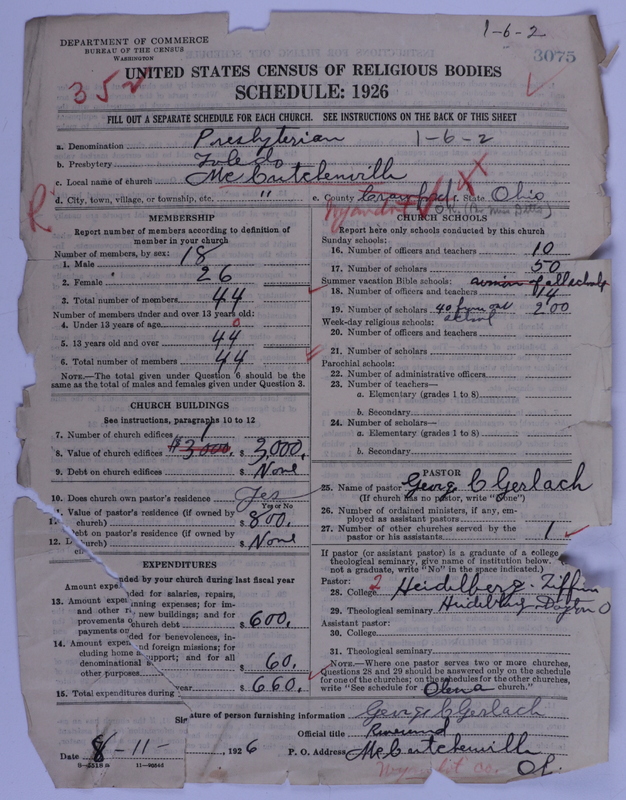 1-6-2
DEPARTMENT OF COMMERCE
BUREAU OF THE CENSUS
WASHINGTON
3075
UNITED STATES CENSUS OF RELIGIOUS BODIES
352
SCHEDULE: 1926
FILL OUT A SEPARATE SCHEDULE FOR EACH CHURCH. SEE INSTRUCTIONS ON THE BACK OF THIS SHEET
a. Denomination Presbyterian 1-6-2
b. Presbytery Toledo
c. Local name of church McCutchenville
d. City, town, village, or township, etc. " e. County Crawford f. State Ohio
Wyandot
R
MEMBERSHIP
Report number of members according to definition of
member in your church
Number of members, by sex:
1. Male 18
2. Female 26
3. Total number of members 44
Number of members under and over 13 years old:
4. Under 13 years of age 0
5. 13 years old and over 44
6. Total number of members 44
NOTE.—The total given under Question 6 should be the
same as the total of males and females given under Question 3.
CHURCH BUILDINGS
See instructions, paragraphs 10 to 12
7. Number of church edifices 1
8. Value of church edifices $3000. $ 3,000.
9. Debt on church edifices $ None
10. Does church own pastor's residence Yes
Yes or No
11. Value of pastor's residence (if owned by
church) $ 800.
12. Debt on pastor's residence (if owned by
church) $ None
EXPENDITURES
Amount expended by your church during last fiscal year
13. Amount expended for salaries, repairs,
and other running expenses; for im-
provements new buildings; and for
payments on church debt $ 600.
14. Amount expended for benevolences, in-
cluding home and foreign missions; for
denominational support; and for all
other purposes $ 60.
15. Total expenditures during year $ 660.
CHURCH SCHOOLS
Report here only schools conducted by this church
Sunday schools:
16. Number of officers and teachers 10
17. Number of scholars 50
Summer vacation Bible schools: of all schools
18. Number of officers and teachers 14
19. Number of scholars 40 from our school 200
Week-day religious schools:
20. Number of officers and teachers
21. Number of scholars
Parochial schools:
22. Number of administrative officers
23. Number of teachers—
a. Elementary (grades 1 to 8)
b. Secondary
24. Number of scholars—
a. Elementary (grades 1 to 8)
b. Secondary
PASTOR
25. Name of pastor George C Gerlach
(If church has no pastor, write "None")
26. Number of ordained ministers, if any, em-
ployed as assistant pastors
27. Number of other churches served by the
pastor or his assistants 1
If pastor (or assistant pastor) is a graduate of a college
theological seminary, give name of institution below.
not a graduate, write "No" in the space indicated.)
Pastor:
28. College 2 Heidelberg Tiffin
29. Theological seminary Heidelberg Dayton O
Assistant pastor:
30. College
31. Theological seminary
NOTE.—Where one pastor serves two or more churches,
Questions 28 and 29 should be answered only on the schedule
for one of the churches; on the schedules for the other churches,
write "See schedule for Olena church."
Signature of person furnishing information George C Gerlach
Official title Reverend
Date 8-11-, 1926 P. O. Address McCutchenville
Wyandot Co. Ohi
8-5518 a 11-90845